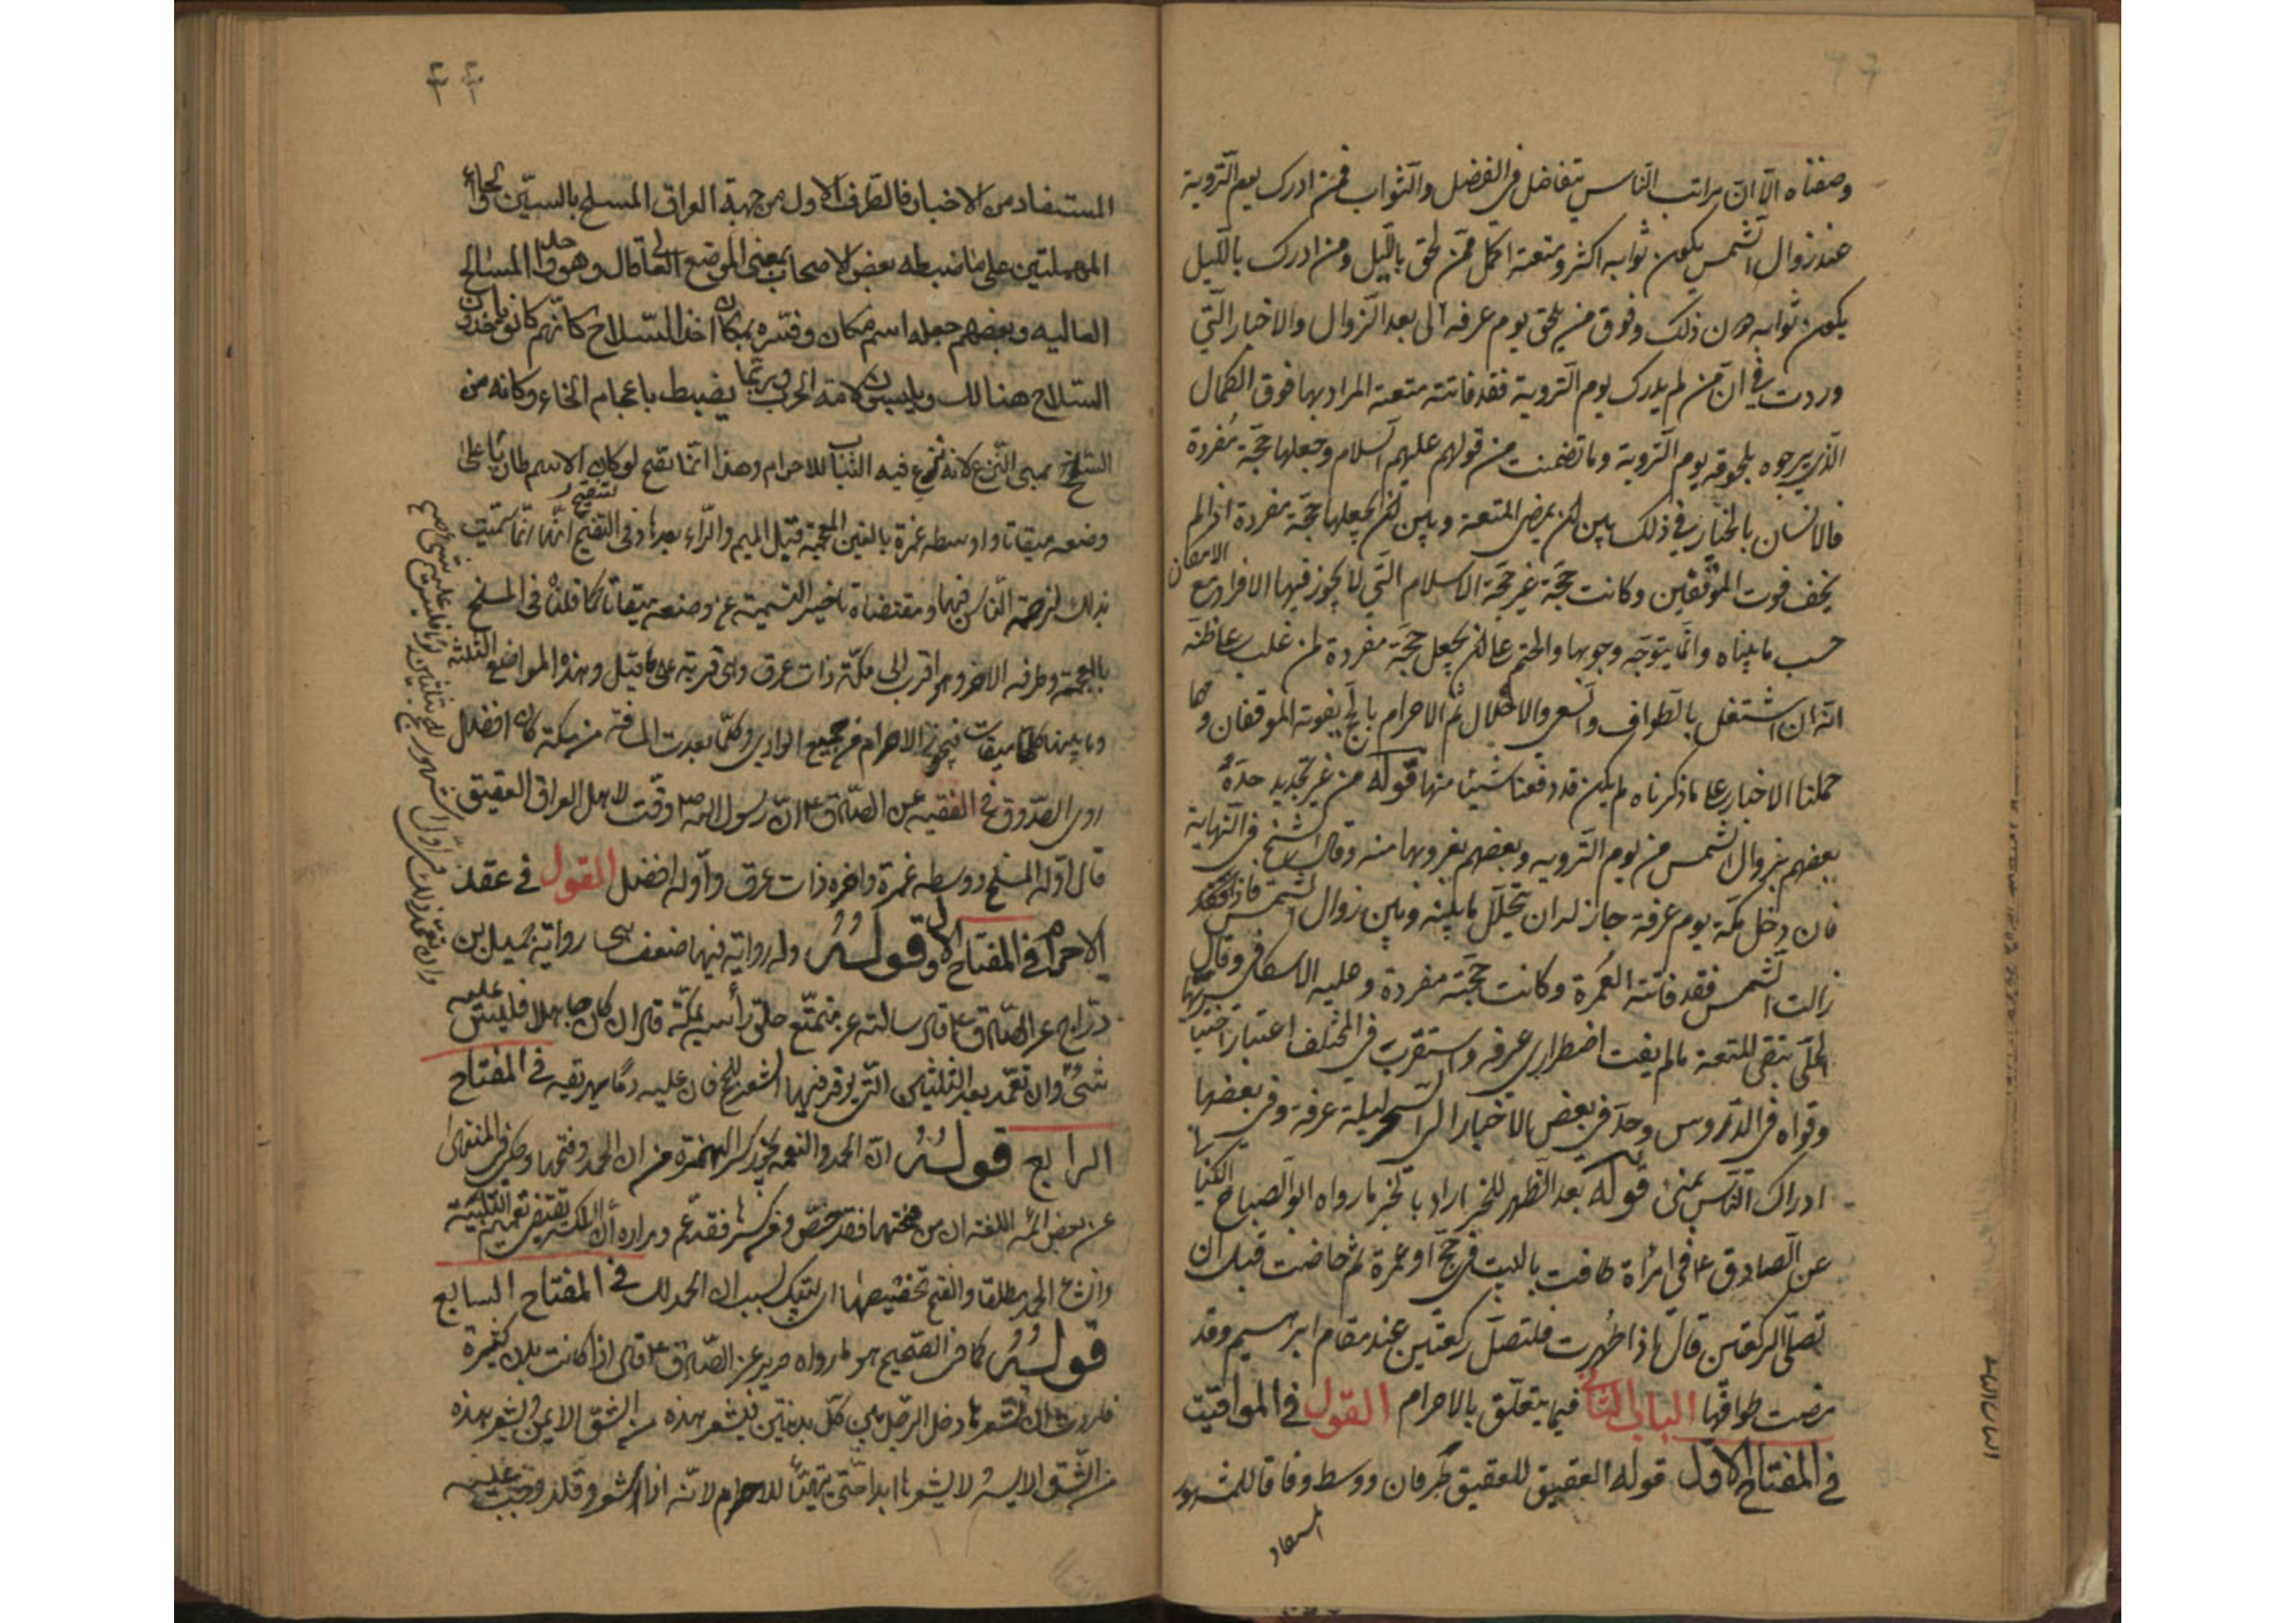 وصفناه الّا انّ مراتب النّاس يتفاضل فى الفضل والثّواب فمن ادرك يوم التّروية
عند زوال الشّمس يكون ثوابه اكثر ومتعته اكمل ممّن لحق بالّليل ومن ادرك بالّليل
يكون ثوابه دون ذلك وفوق من يلحق يوم عرفه الى بعد الزّوال والاخبار الّتي
وردت في انّ من لم يدرك يوم التّروية فقد فاتته متعته المراد بها فوق الكمال
الّذى يرجوه بلحوقه يوم التّروية وما تضمنت من قولهم عليهم السلام وجعلها حجّة مفردة
فالانسان بالخيار في ذلك بين ان يمضى المتعة وبين ان يجعلها حجّة مفردة اذا لم
يخف فوت الموقفين وكانت حجّة غير حجّة الاسلام الّتي لا يجوز فيها الافراد مع الامكان
حسب ما بيناه وانّما يتوجّه وجوبها والحتم على ان يجعل حجّة مفردة لمن غلب على ظنّه
انّه ان اشتغل بالطّواف والسّعى والاحلال ثم الاحرام بالحج يفوته الموقفان ومهما
حملنا الاخبار على ما ذكرناه لم يكن قد دفعنا شيئا منها قوله من غير تجديد حدّه
بعضهم بزوال الشّمس من يوم التّرويه وبعضهم بغروبها منه وقال الشيخ فى النّهاية
فان دخل مكّة يوم عرفة جاز له ان يتحلّل ما بينه وبين زوال الشّمس فاذا
زالت الشّمس فقد فاتته العمرة وكانت حجّته مفردة وعليه الاسكافى وقال
الحلّى تبقى المتعة ما لم يفت اضطرارى عرفه واستقرب فى المختلف اعتبار
وقواه فى الدّروس وحدّ فى بعض الاخبار الى السّحر ليلة عرفة وفى بعضها
ادراك النّاس بمنى قوله بعد الظّهر للخبر اراد بالخبر ما رواه ابو الصّباح الكنانى
عن الصادق ع فى امرأة طافت بالبيت فى حجّ او عمرة ثم حاضت قبل ان
تصلّى الركعتين قال اذا طهرت فلتصلّ ركعتين عند مقام ابرهيم وقد
قضت طوافها الباب الثّانى فيما يتعلّق بالاحرام القول فى المواقيت
فى المفتاح الاوّل قوله العقيق للعقيق طرفان ووسط وفاقا للمشهور
المستفاد
المستفاد من الاخبار فالطّرف الاول من جهة العراق المسلح بالسين والحاء
المهملتين على ما ضبطه بعض الاصحاب بمعنى الموضع العالى قال وهو واحد المسالح
العاليه وبعضهم جعله اسم مكان وفسّره بمكان اخذ السّلاح كانّهم كانوا ياخذون
السّلاح هنالك ويلبسون لامة الحرب وربّما يضبط باعجام الخاء وكانه من
السّلخ بمعنى النّزع لانه تنزع فيه الثّياب للاحرام وهذا انّما يتّجه لو كان الاسم طاريا على
وضعه ميقاتا واوسطه غمرة بالغين المعجمة قبل الميم والرّاء بعدها وفى التنقيح انّها انّما سمّيت
بذلك لزحمة النّاس فيها ومقتضاه تاخير التسمية عن وضعه ميقاتا كما قلناه فى المسلخ
بالمعجمة وطرفه الاخر وهو اقرب الى مكّة ذات عرق وهى قرية على ما قيل وهذه المواضع الثلثة
وما بينها كلّها ميقات فيجوز الاحرام من جميع الوادى وكلّما بعدت المسافة من مكة كان افضل
روى الصّدوق فى الفقيه عن الصّادق ع انّ رسول الله ص وقّت لاهل العراق العقيق
قال اوّله المسلخ ووسطه غمرة واخره ذات عرق واوّله افضل القول فى عقد
الاحرام فى المفتاح الاول قوله وله رواية فيها ضعف هى رواية جميل بن
درّاج عن الصّادق ع قال سالته عن متمتّع حلق رأسه بمكّة قال ان كان جاهلا فليس عليه
شىء وان تعمّد بعد الثلثين الّتى يوفّر فيها الشعر للحجّ فان عليه دما يهريقه فى المفتاح
الرابع قوله انّ الحمد والنعمه يجوز كسر الهمزة من ان الحمد وفتحها وحكى فى المنتهى
عن بعض ائمّة اللغة ان من فتحها فقد خصّ ومن كسرها فقد عمّ ومراده أن الكسر يقتضى تعميم التّلبية
وانشاء الحمد مطلقا والفتح تخصيصها اى لبّيك بسبب ان الحمد لك فى المفتاح السابع
قوله كما فى الصّحيح هو ما رواه حريز عن الصّادق ع قال اذا كانت بدن كثيرة
فاردت ان تشعرها دخل الرّجل بين كلّ بدنتين فيشعر هذه من الشقّ الايمن ويشعر هذه
من الشّق الايسر ولا يشعرها ابدا حتّى يتهيّأ للاحرام لانّه اذا اشعر وقلّد وجب عليه